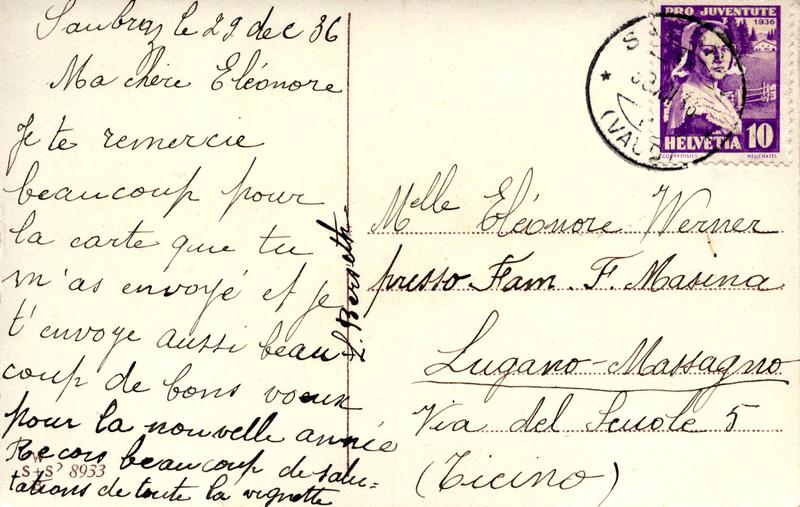 Saubraz le 29 dec 36
Ma chère Eléonore
Je te remercie
beaucoup pour
la carte que tu
m'as envoyé et je
t'envoye aussi beau
coup de bons voeux
pour la nouvelle année
Recois beaucoup de salu=
tations de toute la vignette
S+S 8933
L. Berseth
PRO JUVENTUTE
1936
HELVETIA 10
COURVOISIER NEUCHATEL
(VAUD)
Melle Eléonore Werner
presso Fam. F. Masina
Lugano-Massagno
Via del Scuole 5
(Ticino)